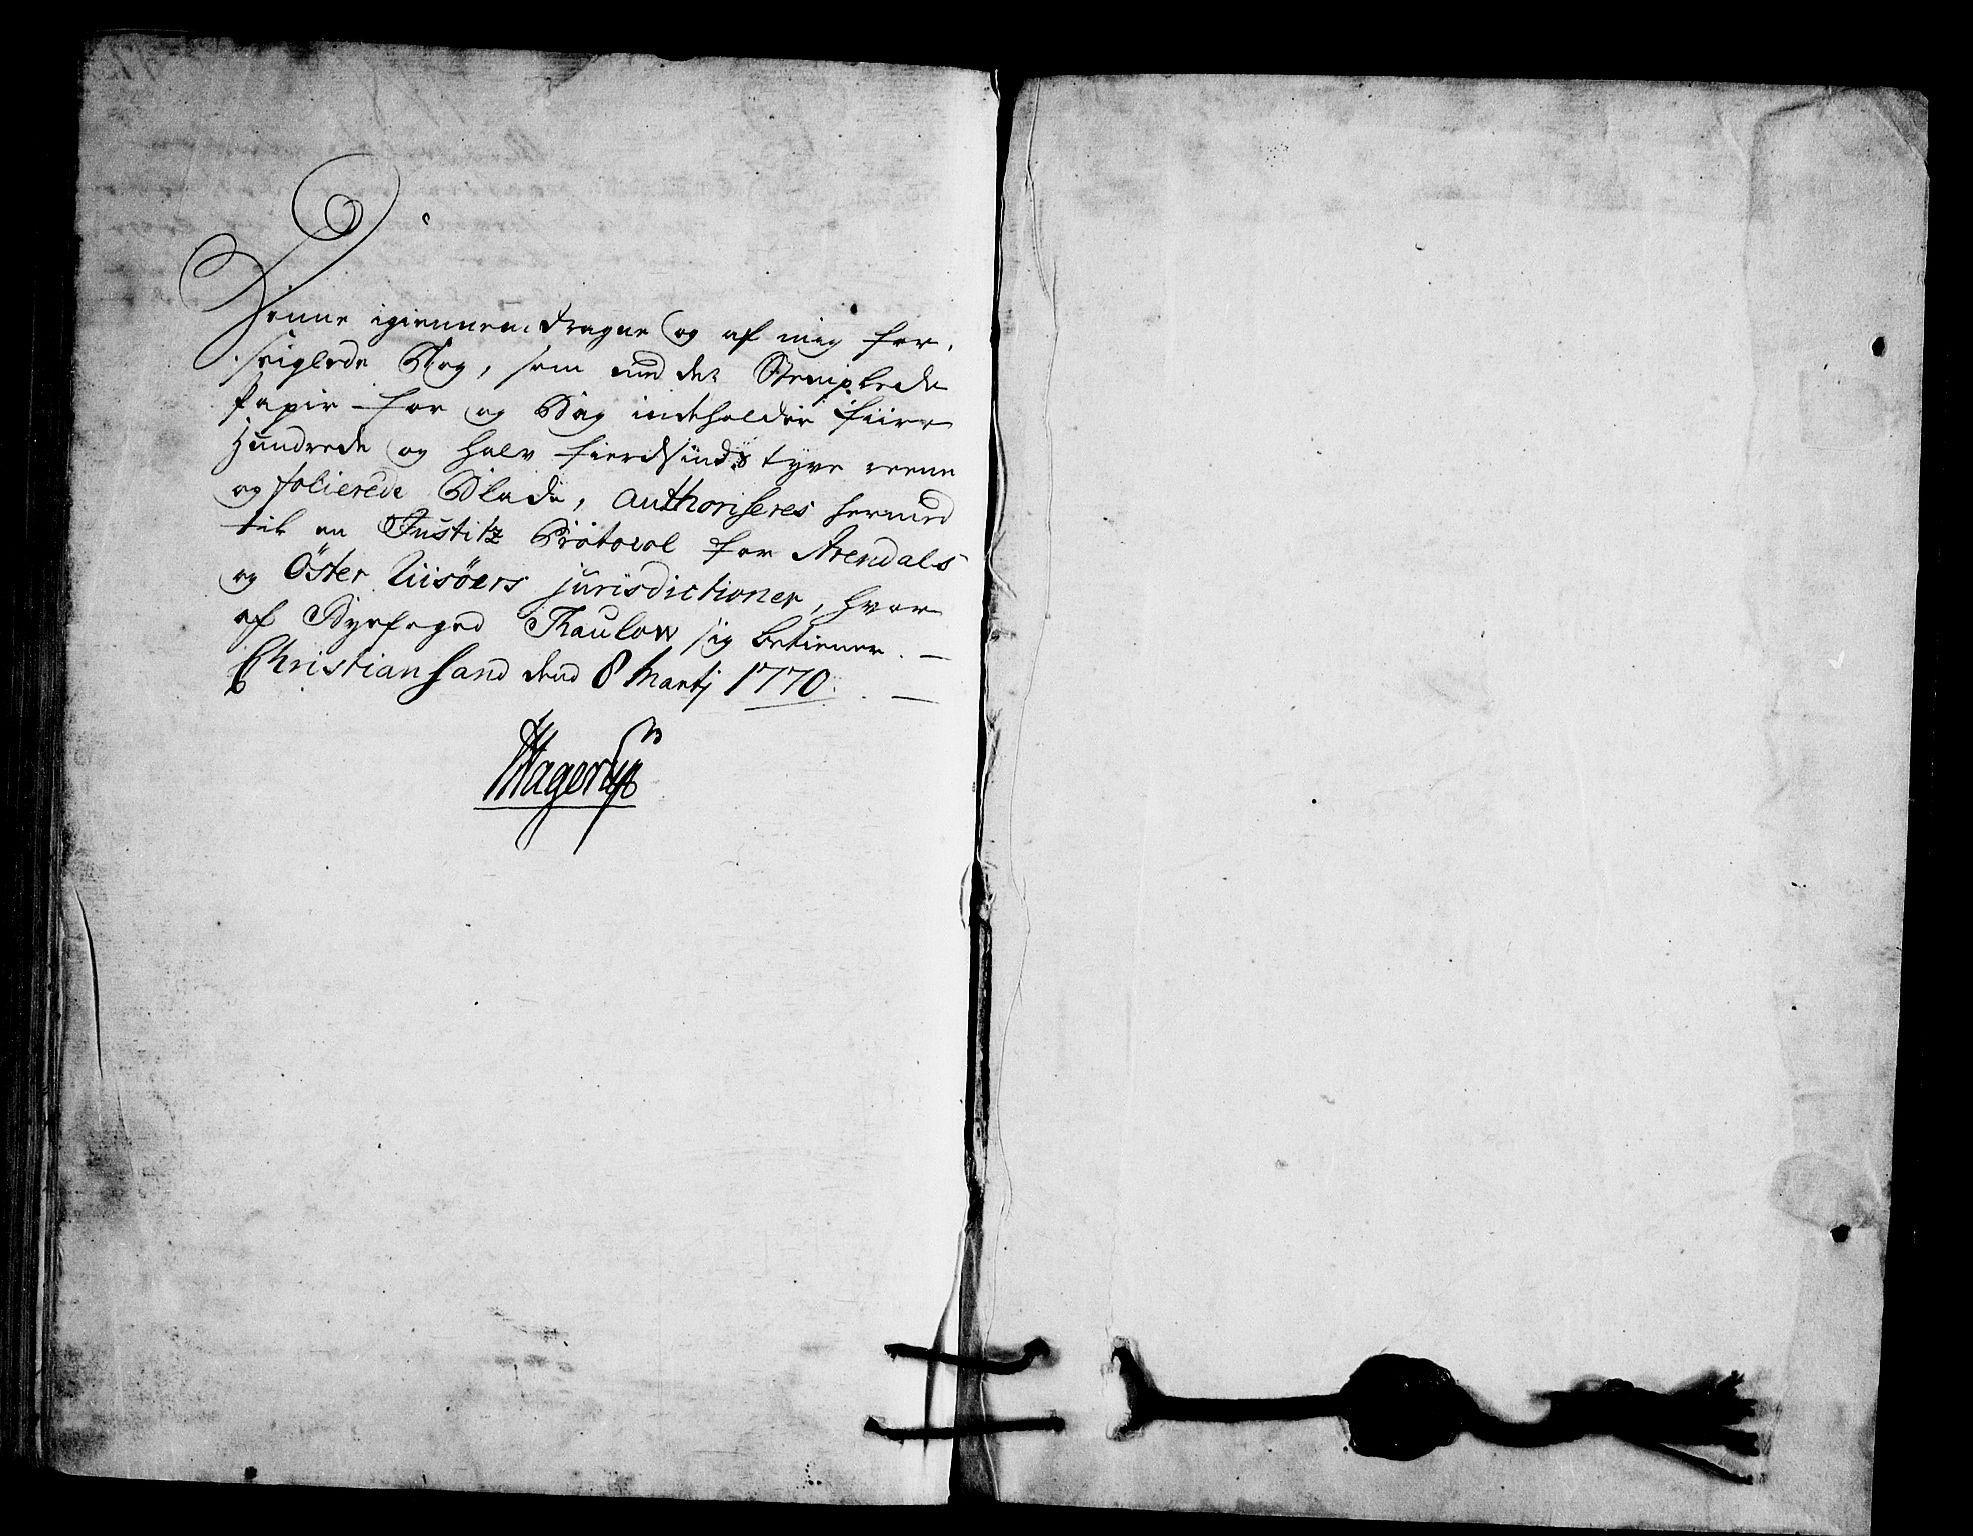 Denne igiennem dragne og af mig for-
seiglede Bog, som med det Stemplede
Papir for og Bag indeholder fiire
Hundrede og halv fierdsinds tyve reene
og folierede Blade, authoriseres hermed
til en Justitz Protocol for Arendals
og Öster Riisöers jurisdictioner, hvor
af Byefoged Thaulow sig betiener. —
Christiansand dend 8 Martj 1770. —
Hagerup